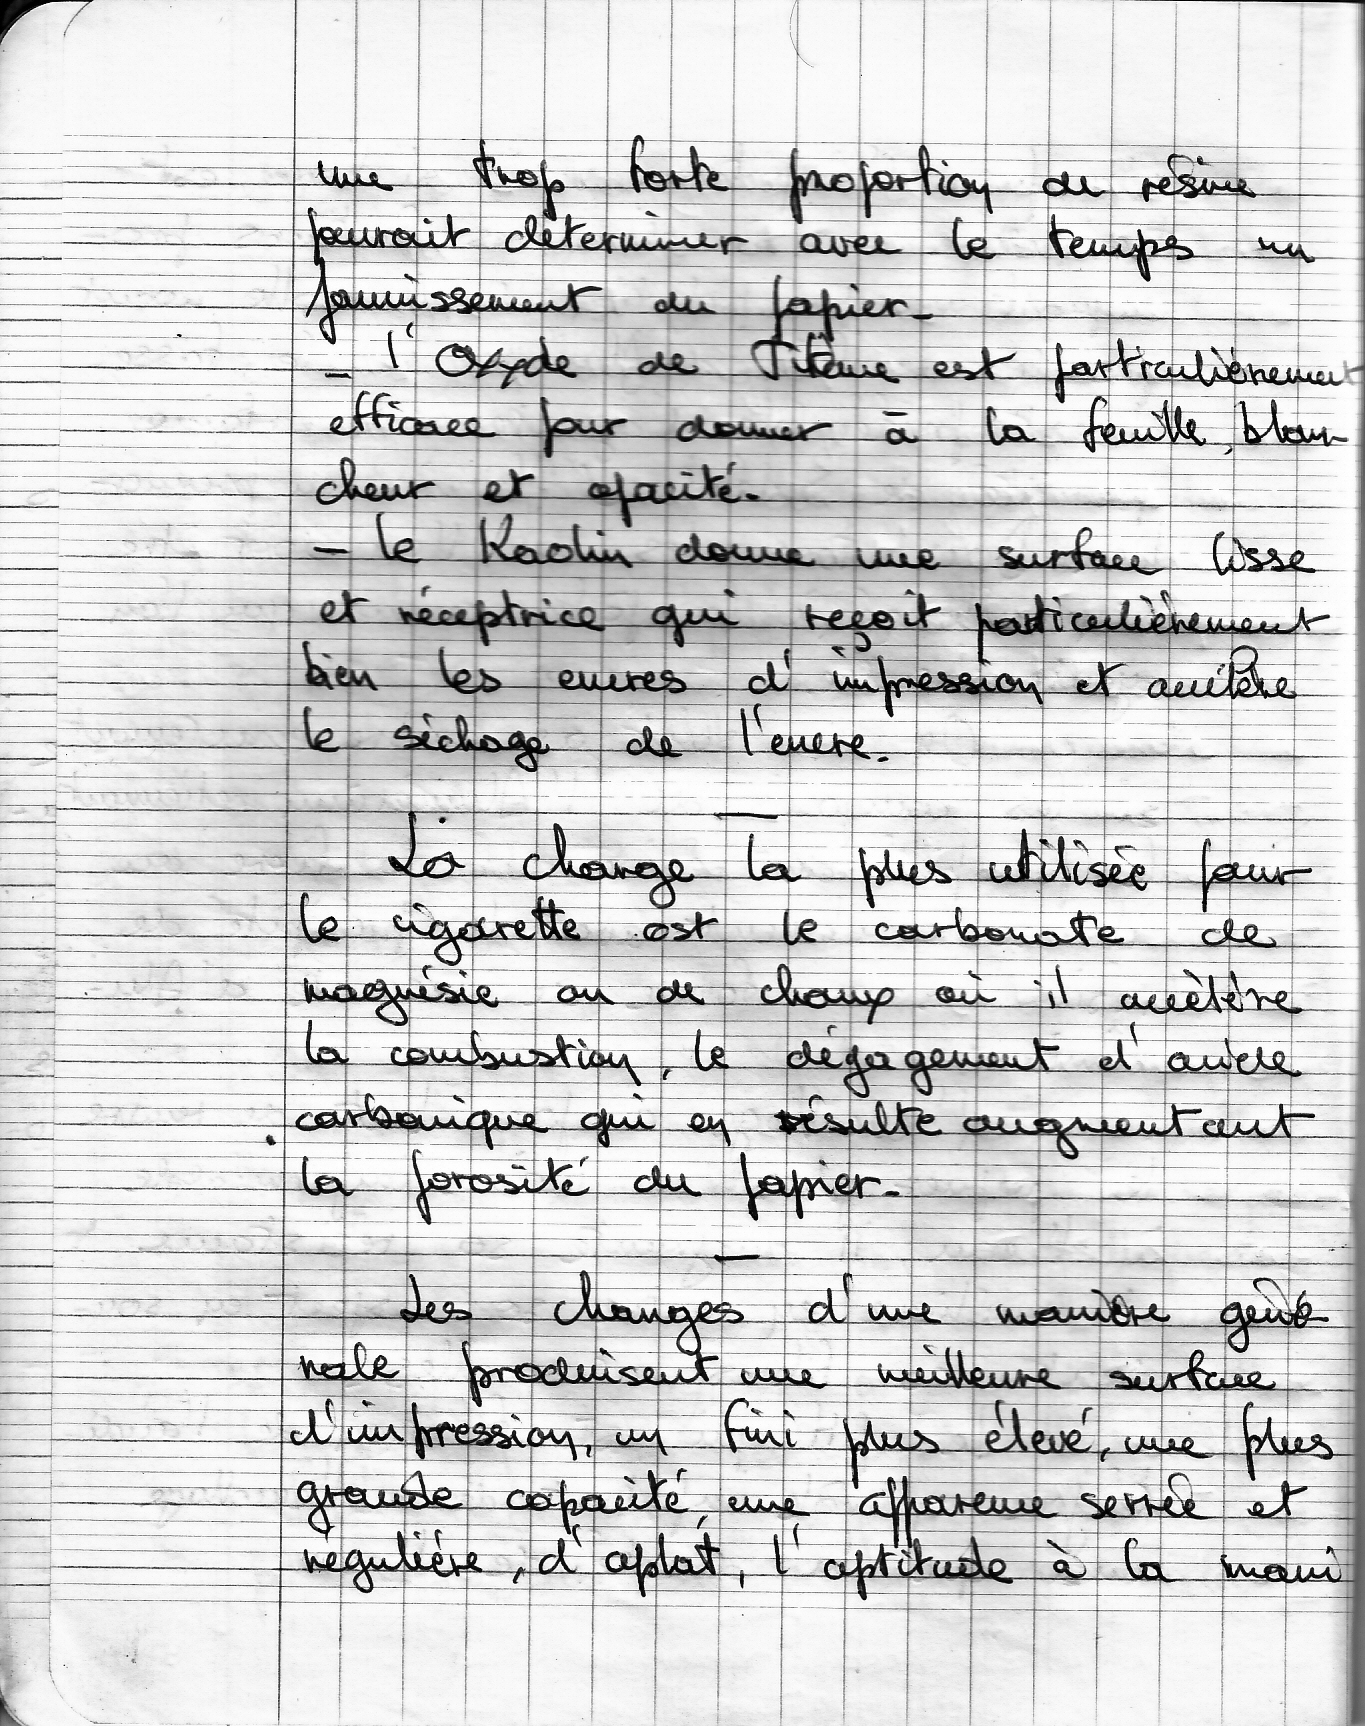 une trop forte proportion de résine
pourait déterminer avec le temps un
jaunissement du papier -
- l'Oxyde de Titane est particulièrement
efficace pour donner à la feuille, blan-
cheur et opacité.
- le Kaolin donne une surface lisse
et réceptrice qui reçoit particulièrement
bien les encres d'impression et accélère
le séchage de l'encre.
La charge la plus utilisée pour
le cigarette est le carbonate de
magnésie ou de chaux où il accélère
la combustion, le dégagement d'acide
carbonique qui en résulte augmentant
la porosité du papier -
Les charges d'une manière géné-
rale produisent une meilleure surface
d'impression, un fini plus élevé, une plus
grande capacité, une apparence serrée et
régulière, d'aplat, l'aptitude à la mani